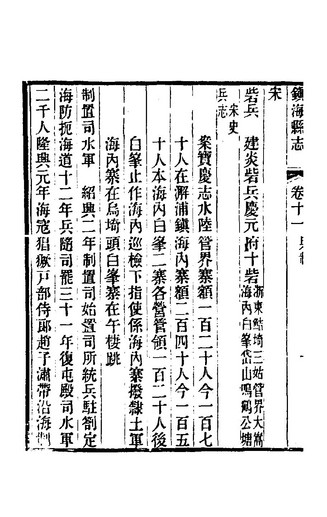 鎮海縣志　卷十一
宋
砦兵　建炎砦兵慶元府十砦浙東鮚埼三姑管界大嵩
海內白峯岱山鳴鶴公塘
宋史
兵志
案寶慶志水陸管界寨額一百二十人今一百七
十人在澥浦鎮海內寨額二百四十人今一百五
十人本海內白峯二寨各營管領一百二十人後
白峯止作海內巡檢下指使係海內寨撥隸土軍
海內寨在烏埼頭白峯寨在午棲跳
制置司水軍　紹興二年制置司始置司所統兵駐劄定
海防扼海道十二年兵隨司罷三十一年復屯殿司水軍
二千人隆興元年海寇猖獗戶部侍郎趙子潚帶沿海制